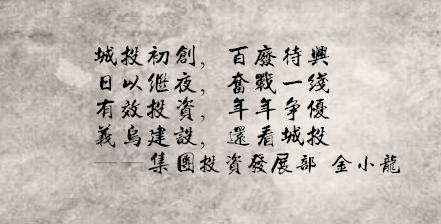 城投初創，百廢待興
日以繼夜，奮戰一綫
有效投資，年年爭優
義烏建設，還看城投
——集團投資發展部 金小龍